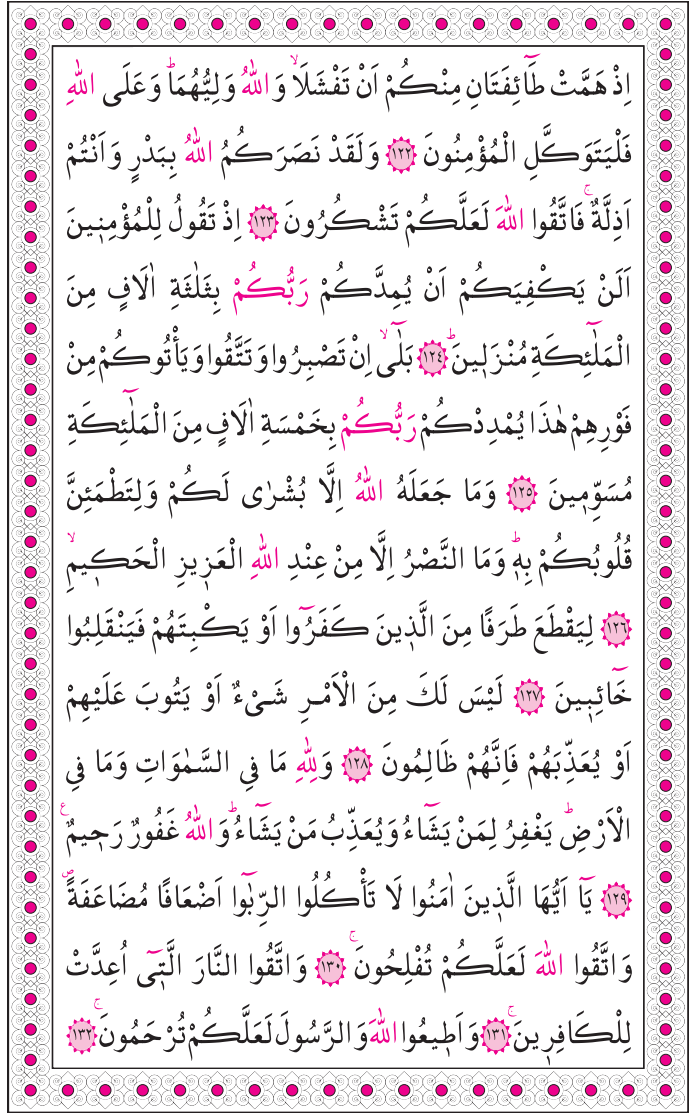 اِذْ هَمَّتْ طَٓائِفَتَانِ مِنْكُمْ اَنْ تَفْشَلَاۙ وَاللّٰهُ وَلِيُّهُمَاۜ وَعَلَى اللّٰهِ
فَلْيَتَوَكَّلِ الْمُؤْمِنُونَ ﴿١٢٢﴾ وَلَقَدْ نَصَرَكُمُ اللّٰهُ بِبَدْرٍ وَاَنْتُمْ
اَذِلَّةٌۚ فَاتَّقُوا اللّٰهَ لَعَلَّكُمْ تَشْكُرُونَ ﴿١٢٣﴾ اِذْ تَقُولُ لِلْمُؤْمِنٖينَ
اَلَنْ يَكْفِيَكُمْ اَنْ يُمِدَّكُمْ رَبُّكُمْ بِثَلٰثَةِ اٰلَافٍ مِنَ
الْمَلٰٓئِكَةِ مُنْزَلٖينَۜ ﴿١٢٤﴾ بَلٰٓىۙ اِنْ تَصْبِرُوا وَتَتَّقُوا وَيَأْتُوكُمْ مِنْ
فَوْرِهِمْ هٰذَا يُمْدِدْكُمْ رَبُّكُمْ بِخَمْسَةِ اٰلَافٍ مِنَ الْمَلٰٓئِكَةِ
مُسَوِّمٖينَ ﴿١٢٥﴾ وَمَا جَعَلَهُ اللّٰهُ اِلَّا بُشْرٰى لَكُمْ وَلِتَطْمَئِنَّ
قُلُوبُكُمْ بِهٖۜ وَمَا النَّصْرُ اِلَّا مِنْ عِنْدِ اللّٰهِ الْعَزٖيزِ الْحَكٖيمِۙ
﴿١٢٦﴾ لِيَقْطَعَ طَرَفًا مِنَ الَّذٖينَ كَفَرُٓوا اَوْ يَكْبِتَهُمْ فَيَنْقَلِبُوا
خَٓائِبٖينَ ﴿١٢٧﴾ لَيْسَ لَكَ مِنَ الْاَمْرِ شَیْءٌ اَوْ يَتُوبَ عَلَيْهِمْ
اَوْ يُعَذِّبَهُمْ فَاِنَّهُمْ ظَالِمُونَ ﴿١٢٨﴾ وَلِلّٰهِ مَا فِی السَّمٰوَاتِ وَمَا فِی
الْاَرْضِۜ يَغْفِرُ لِمَنْ يَشَٓاءُ وَيُعَذِّبُ مَنْ يَشَٓاءُۜ وَاللّٰهُ غَفُورٌ رَحٖيمٌࣖ
﴿١٢٩﴾ يَٓا اَيُّهَا الَّذٖينَ اٰمَنُوا لَا تَأْكُلُوا الرِّبٰٓوا اَضْعَافًا مُضَاعَفَةًࣕ
وَاتَّقُوا اللّٰهَ لَعَلَّكُمْ تُفْلِحُونَۚ ﴿١٣٠﴾ وَاتَّقُوا النَّارَ الَّتٖٓى اُعِدَّتْ
لِلْكَافِرٖينَۚ ﴿١٣١﴾ وَاَطٖيعُوا اللّٰهَ وَالرَّسُولَ لَعَلَّكُمْ تُرْحَمُونَۚ ﴿١٣٢﴾